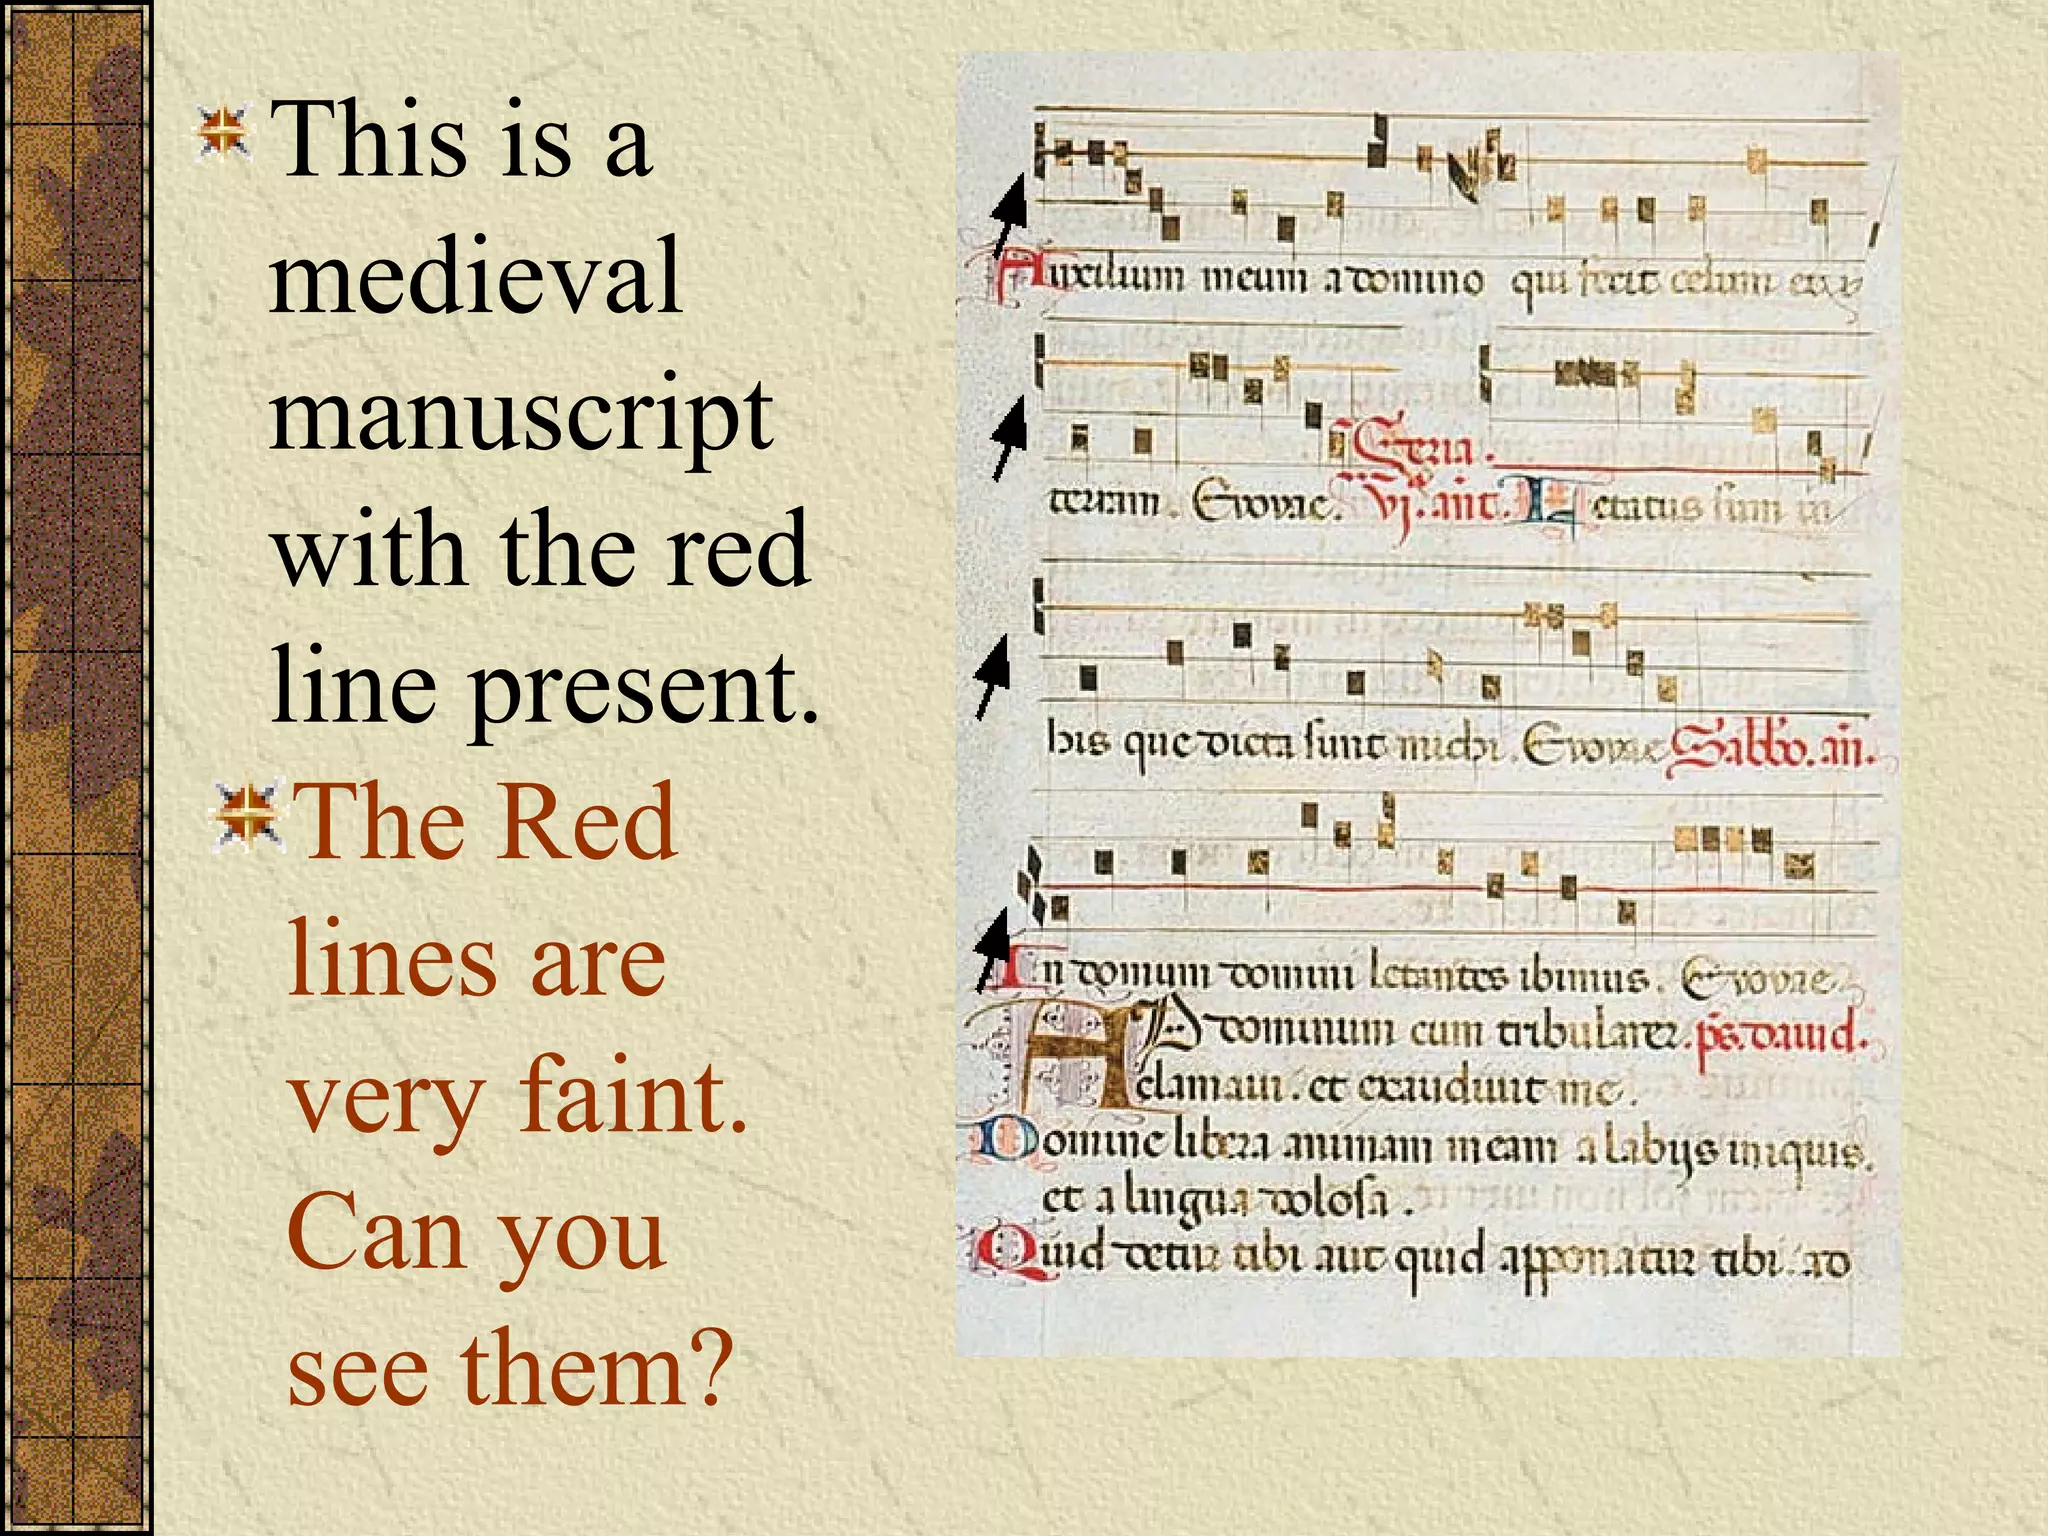 This is a
medieval
manuscript
with the red
line present.
The Red
lines are
very faint.
Can you
see them?
Auxilium meum a domino qui fecit celum et
terram. Evovae. Feria.
vj. ant. Letatus sum in
his que dicta sunt michi. Evovae Sabbo. an.
In domum domini letantes ibimus. Evovae
AD dominum cum tribularer. ps. david.
clamavi. et exaudivit me.
Domine libera animam meam a labijs iniquis.
et a lingua dolosa.
Quid detur tibi aut quid apponatur tibi. ad